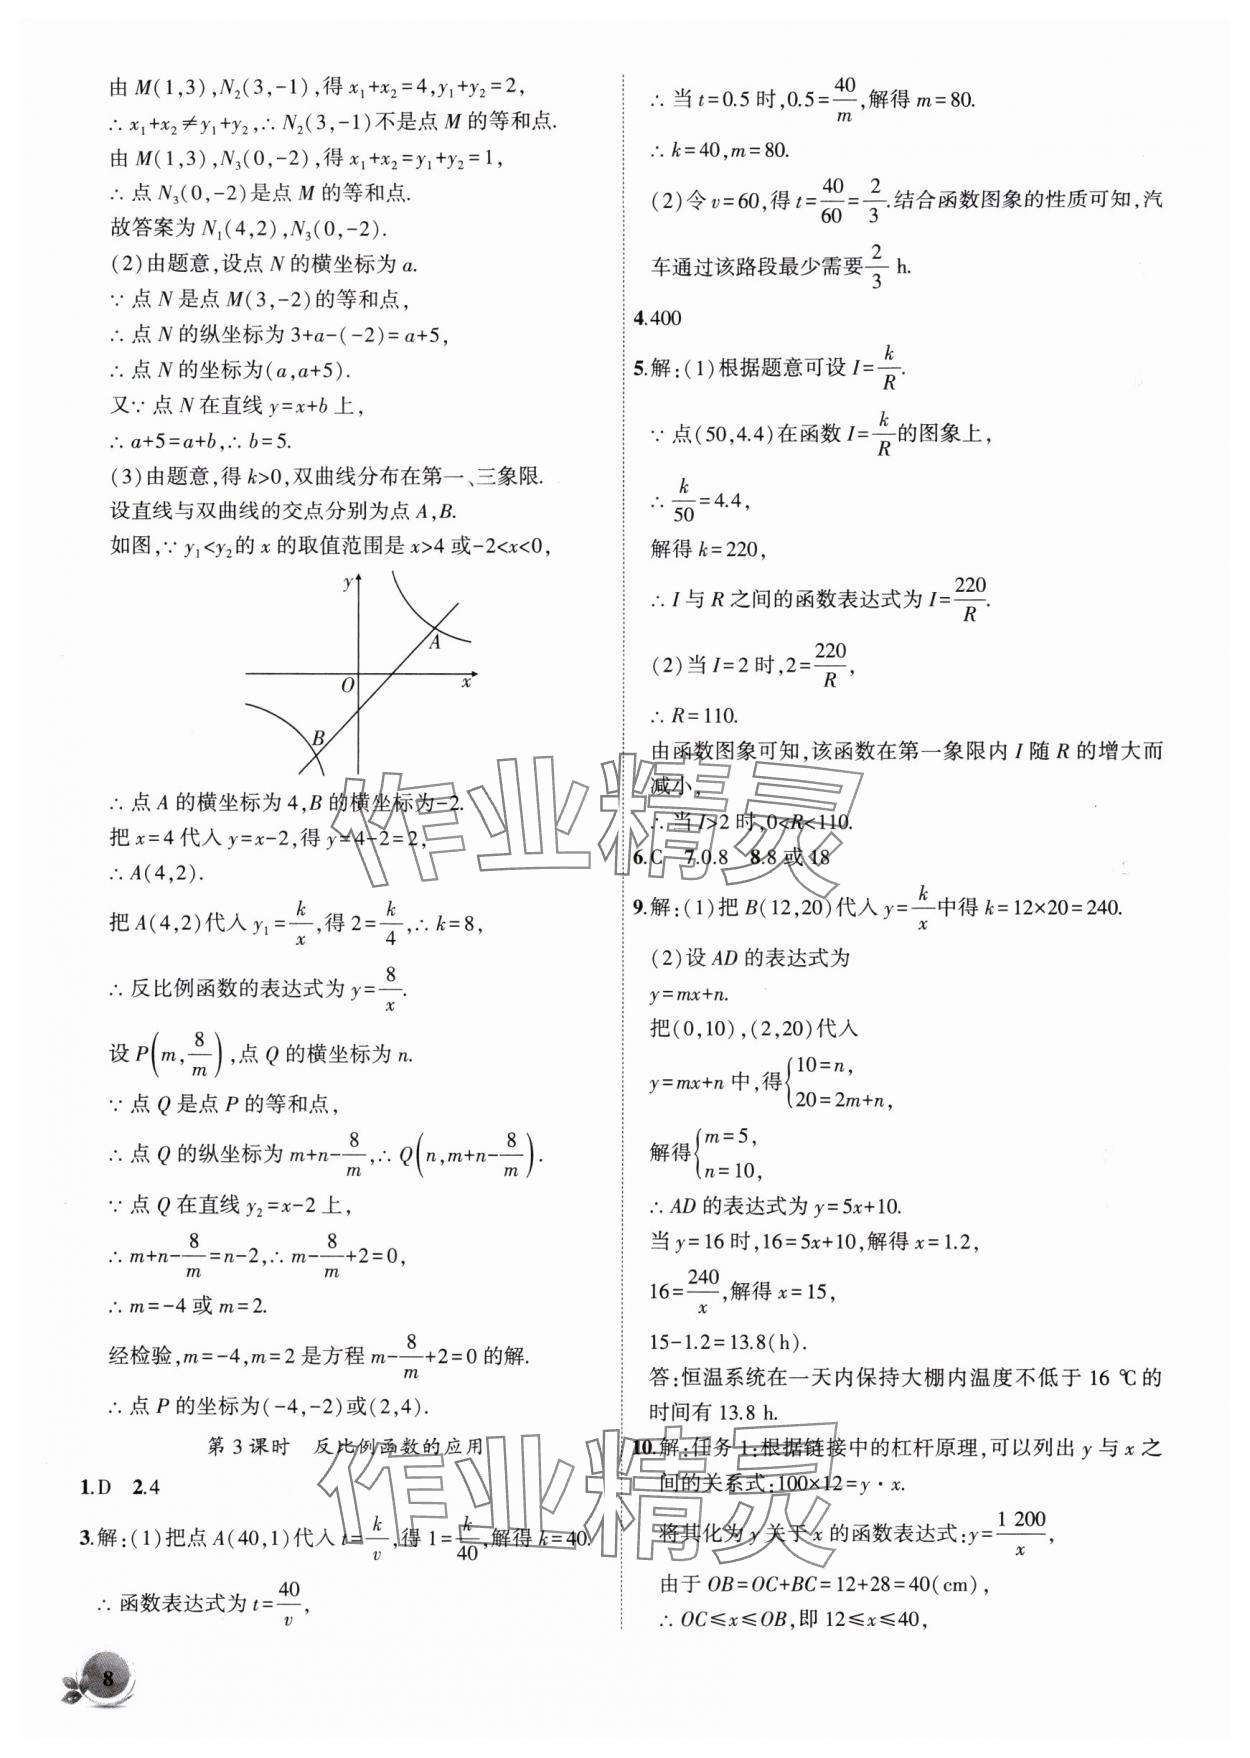 由 M(1,3),N₂(3,-1),得 x₁+x₂=4,y₁+y₂=2,
∴ x₁+x₂≠y₁+y₂,∴ N₂(3,-1)不是点 M 的等和点.
由 M(1,3),N₃(0,-2),得 x₁+x₂=y₁+y₂=1,
∴ 点 N₃(0,-2)是点 M 的等和点.
故答案为 N₁(4,2),N₃(0,-2).
(2)由题意,设点 N 的横坐标为 a.
∵ 点 N 是点 M(3,-2)的等和点,
∴ 点 N 的纵坐标为 3+a-(-2)=a+5,
∴ 点 N 的坐标为(a,a+5).
又∵ 点 N 在直线 y=x+b 上,
∴ a+5=a+b,∴ b=5.
(3)由题意,得 k>0,双曲线分布在第一、三象限.
设直线与双曲线的交点分别为点 A,B.
如图,∵ y₁<y₂的 x 的取值范围是 x>4 或-2<x<0,
y
A
O
x
B
∴ 点 A 的横坐标为 4,B 的横坐标为-2.
把 x=4 代入 y=x-2,得 y=4-2=2,
∴ A(4,2).
把 A(4,2)代入 y₁=k/x,得 2=k/4,∴ k=8,
∴ 反比例函数的表达式为 y=8/x.
设 P(m,8/m),点 Q 的横坐标为 n.
∵ 点 Q 是点 P 的等和点,
∴ 点 Q 的纵坐标为 m+n-8/m,∴ Q(n,m+n-8/m).
∵ 点 Q 在直线 y₂=x-2 上,
∴ m+n-8/m=n-2,∴ m-8/m+2=0,
∴ m=-4 或 m=2.
经检验,m=-4,m=2 是方程 m-8/m+2=0 的解.
∴ 点 P 的坐标为(-4,-2)或(2,4).
第 3 课时 反比例函数的应用
1.D 2.4
3.解:(1)把点 A(40,1)代入 t=k/v,得 1=k/40,解得 k=40.
∴ 函数表达式为 t=40/v,
8
∴ 当 t=0.5 时,0.5=40/m,解得 m=80.
∴ k=40,m=80.
(2)令 v=60,得 t=40/60=2/3.结合函数图象的性质可知,汽
车通过该路段最少需要2/3 h.
4.400
5.解:(1)根据题意可设 I=k/R.
∵ 点(50,4.4)在函数 I=k/R的图象上,
∴ k/50=4.4,
解得 k=220,
∴ I 与 R 之间的函数表达式为 I=220/R.
(2)当 I=2 时,2=220/R,
∴ R=110.
由函数图象可知,该函数在第一象限内 I 随 R 的增大而
减小,
∴ 当 I>2 时,0<R<110.
6.C 7.0.8 8.8 或 18
9.解:(1)把 B(12,20)代入 y=k/x中得 k=12×20=240.
(2)设 AD 的表达式为
y=mx+n.
把(0,10),(2,20)代入
y=mx+n 中,得{10=n,
20=2m+n,
解得{m=5,
n=10,
∴ AD 的表达式为 y=5x+10.
当 y=16 时,16=5x+10,解得 x=1.2,
16=240/x,解得 x=15,
15-1.2=13.8(h).
答:恒温系统在一天内保持大棚内温度不低于 16 ℃的
时间有 13.8 h.
10.解:任务 1:根据链接中的杠杆原理,可以列出 y 与 x 之
间的关系式:100×12=y·x.
将其化为 y 关于 x 的函数表达式:y=1 200/x,
由于 OB=OC+BC=12+28=40(cm),
∴ OC≤x≤OB,即 12≤x≤40,
作业精灵
作业精灵